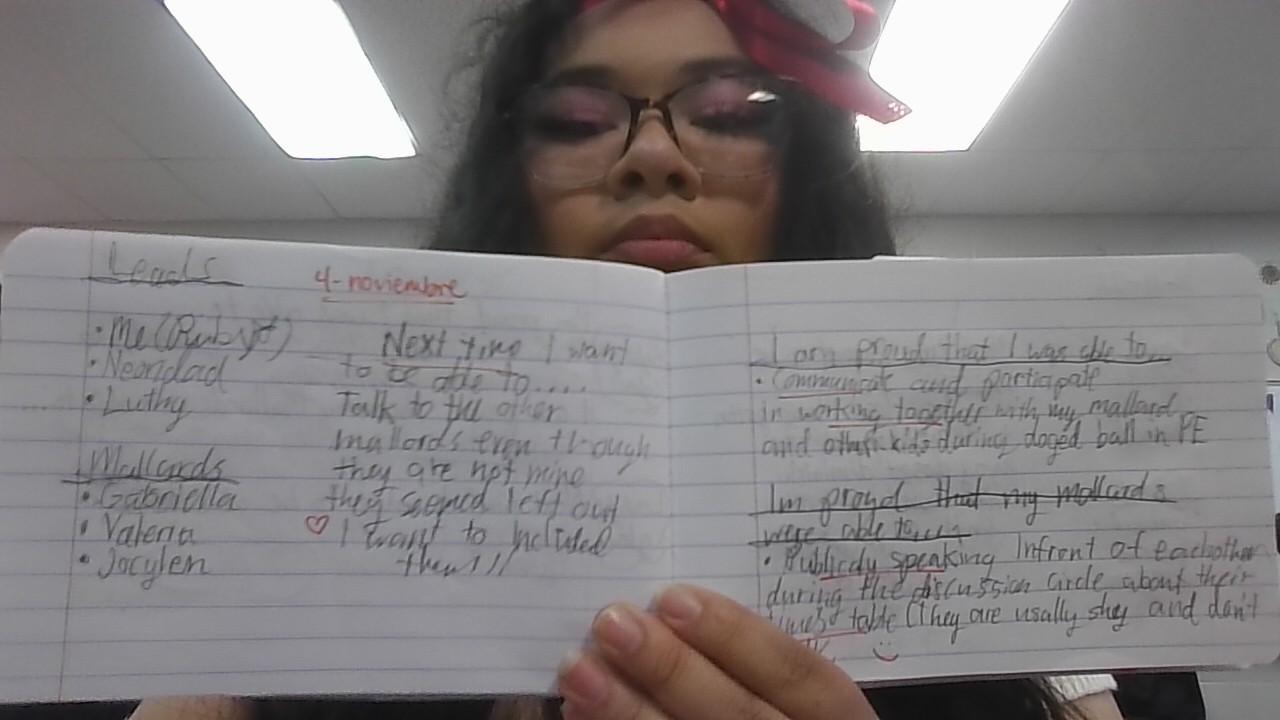 Leads
4-noviembre
• Me (Rubyt)
• Neondad
• Luthy
Mallards
• Gabriella
• Valeria
• Jocylen
Next time I want
to be able to....
Talk to the other
mallords even though
they are not mine
they seemed left out
I want to Included
them!!!
I am proud that I was able to
• Communicate and participate
in working together with my mallard
and other kids during doged ball in PE
Im proud that my mallards
were able to....
• Publicdy speaking Infront of eachother
during the discussion circle about their
times table (They are usally shy and don't